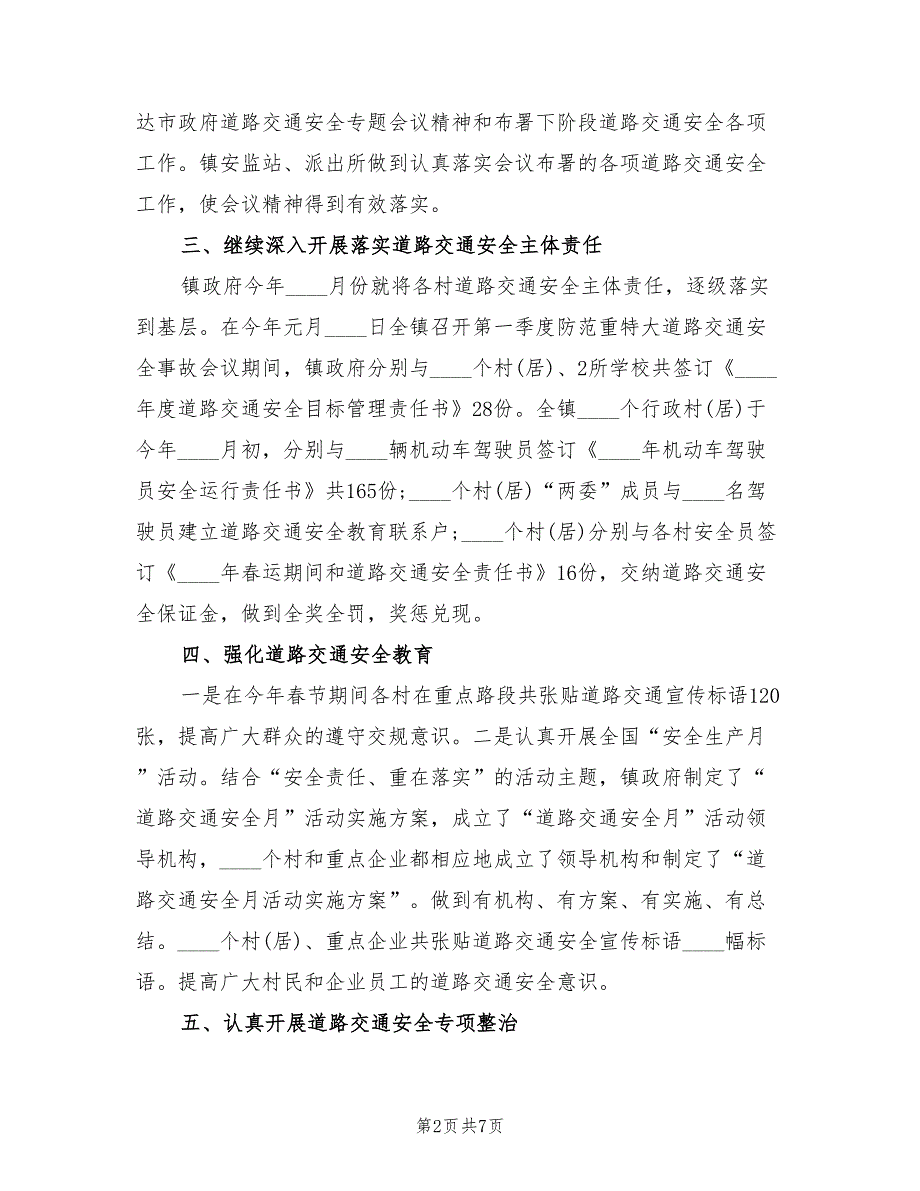 达市政府道路交通安全专题会议精神和布署下阶段道路交通安全各项
工作。镇安监站、派出所做到认真落实会议布署的各项道路交通安全
工作，使会议精神得到有效落实。
三、继续深入开展落实道路交通安全主体责任
镇政府今年____月份就将各村道路交通安全主体责任，逐级落实
到基层。在今年元月____日全镇召开第一季度防范重特大道路交通安
全事故会议期间，镇政府分别与____个村(居)、2所学校共签订《____
年度道路交通安全目标管理责任书》28份。全镇____个行政村(居)于
今年____月初，分别与____辆机动车驾驶员签订《____年机动车驾驶
员安全运行责任书》共165份;____个村(居)“两委”成员与____名驾
驶员建立道路交通安全教育联系户;____个村(居)分别与各村安全员签
订《____年春运期间和道路交通安全责任书》16份，交纳道路交通安
全保证金，做到全奖全罚，奖惩兑现。
四、强化道路交通安全教育
一是在今年春节期间各村在重点路段共张贴道路交通宣传标语120
张，提高广大群众的遵守交规意识。二是认真开展全国“安全生产月
”活动。结合“安全责任、重在落实”的活动主题，镇政府制定了“
道路交通安全月”活动实施方案，成立了“道路交通安全月”活动领
导机构，____个村和重点企业都相应地成立了领导机构和制定了“道
路交通安全月活动实施方案”。做到有机构、有方案、有实施、有总
结。____个村(居)、重点企业共张贴道路交通安全宣传标语____幅标
语。提高广大村民和企业员工的道路交通安全意识。
五、认真开展道路交通安全专项整治
第2页共7页